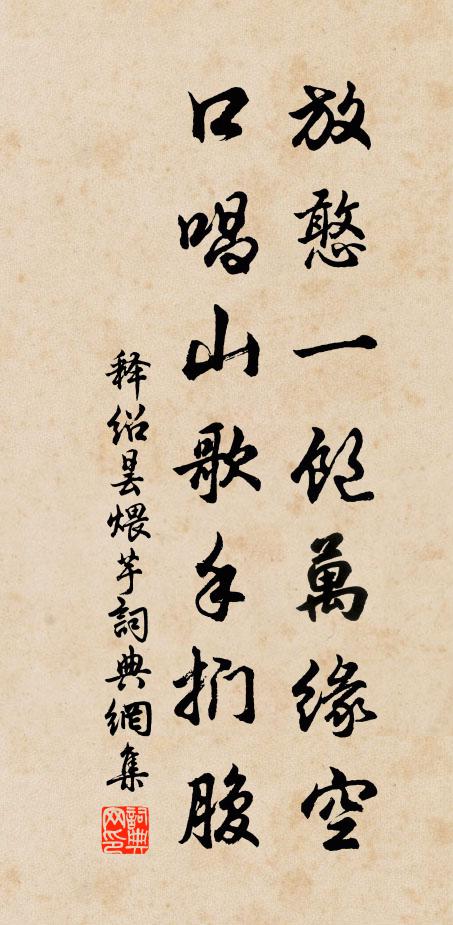 放憨一飽萬緣空
口唱山歌手捫腹
釋紹曇煨芋詞典網集
詞典网印